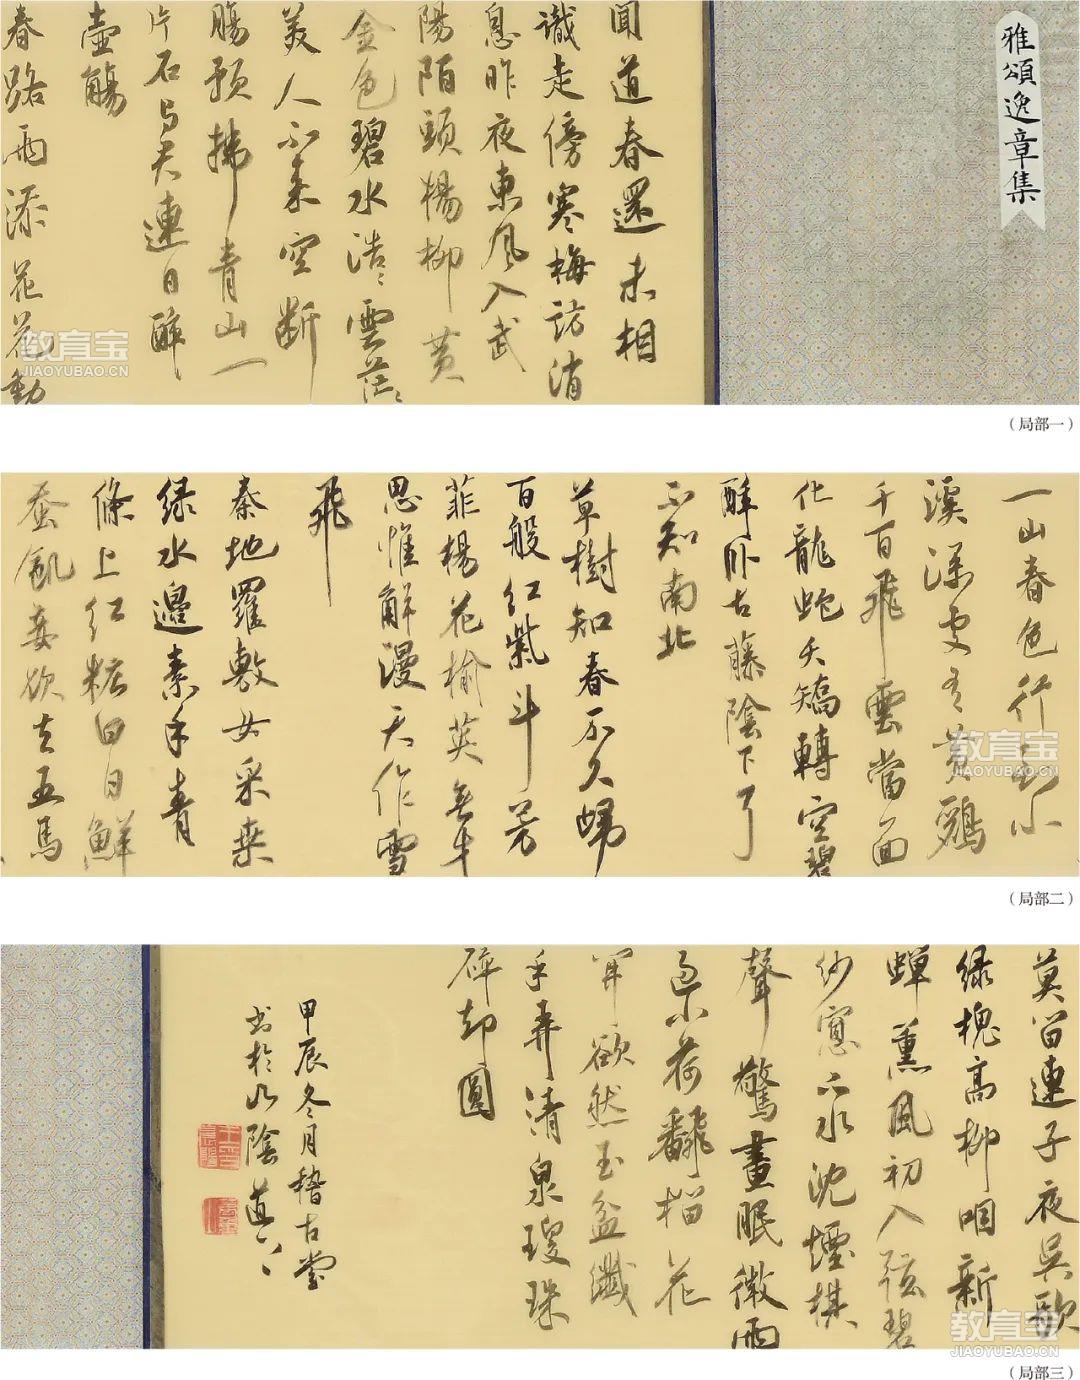 雅頌逸章集
聞道春還未相
識走傍寒梅訪消
息昨夜東風入武
陽陌頭楊柳黄
金色碧水浩〻雲茫〻
美人不来空断
腸預拂青山一
片石与君連日醉
壺觴
春路雨添花花動
教育宝
JIAOYUBAO.CN
（局部一）
一山春色行到小
溪深處有黄鸝
千百飛雲當面
化龍蛇夭矯轉空碧
醉卧古藤陰下了
不知南北
草樹知春不久歸
百般红紫斗芳
菲楊花榆荚無才
思惟解漫天作雪
飛
秦地羅敷女采桑
绿水邊素手青
條上红粧白日鮮
蚕飢妾欲去五馬
教育宝
JIAOYUBAO.CN
（局部二）
莫留連子夜吴歌
绿槐高柳咽新
蟬薰風初入弦碧
纱窓下水沈煙棋
聲驚晝眠微雨
過小荷翻榴花
開欲然玉盆纖
手弄清泉瓊珠
碎却圓
甲辰冬月稽古堂
书於山陰道
教育宝
JIAOYUBAO.CN
（局部三）